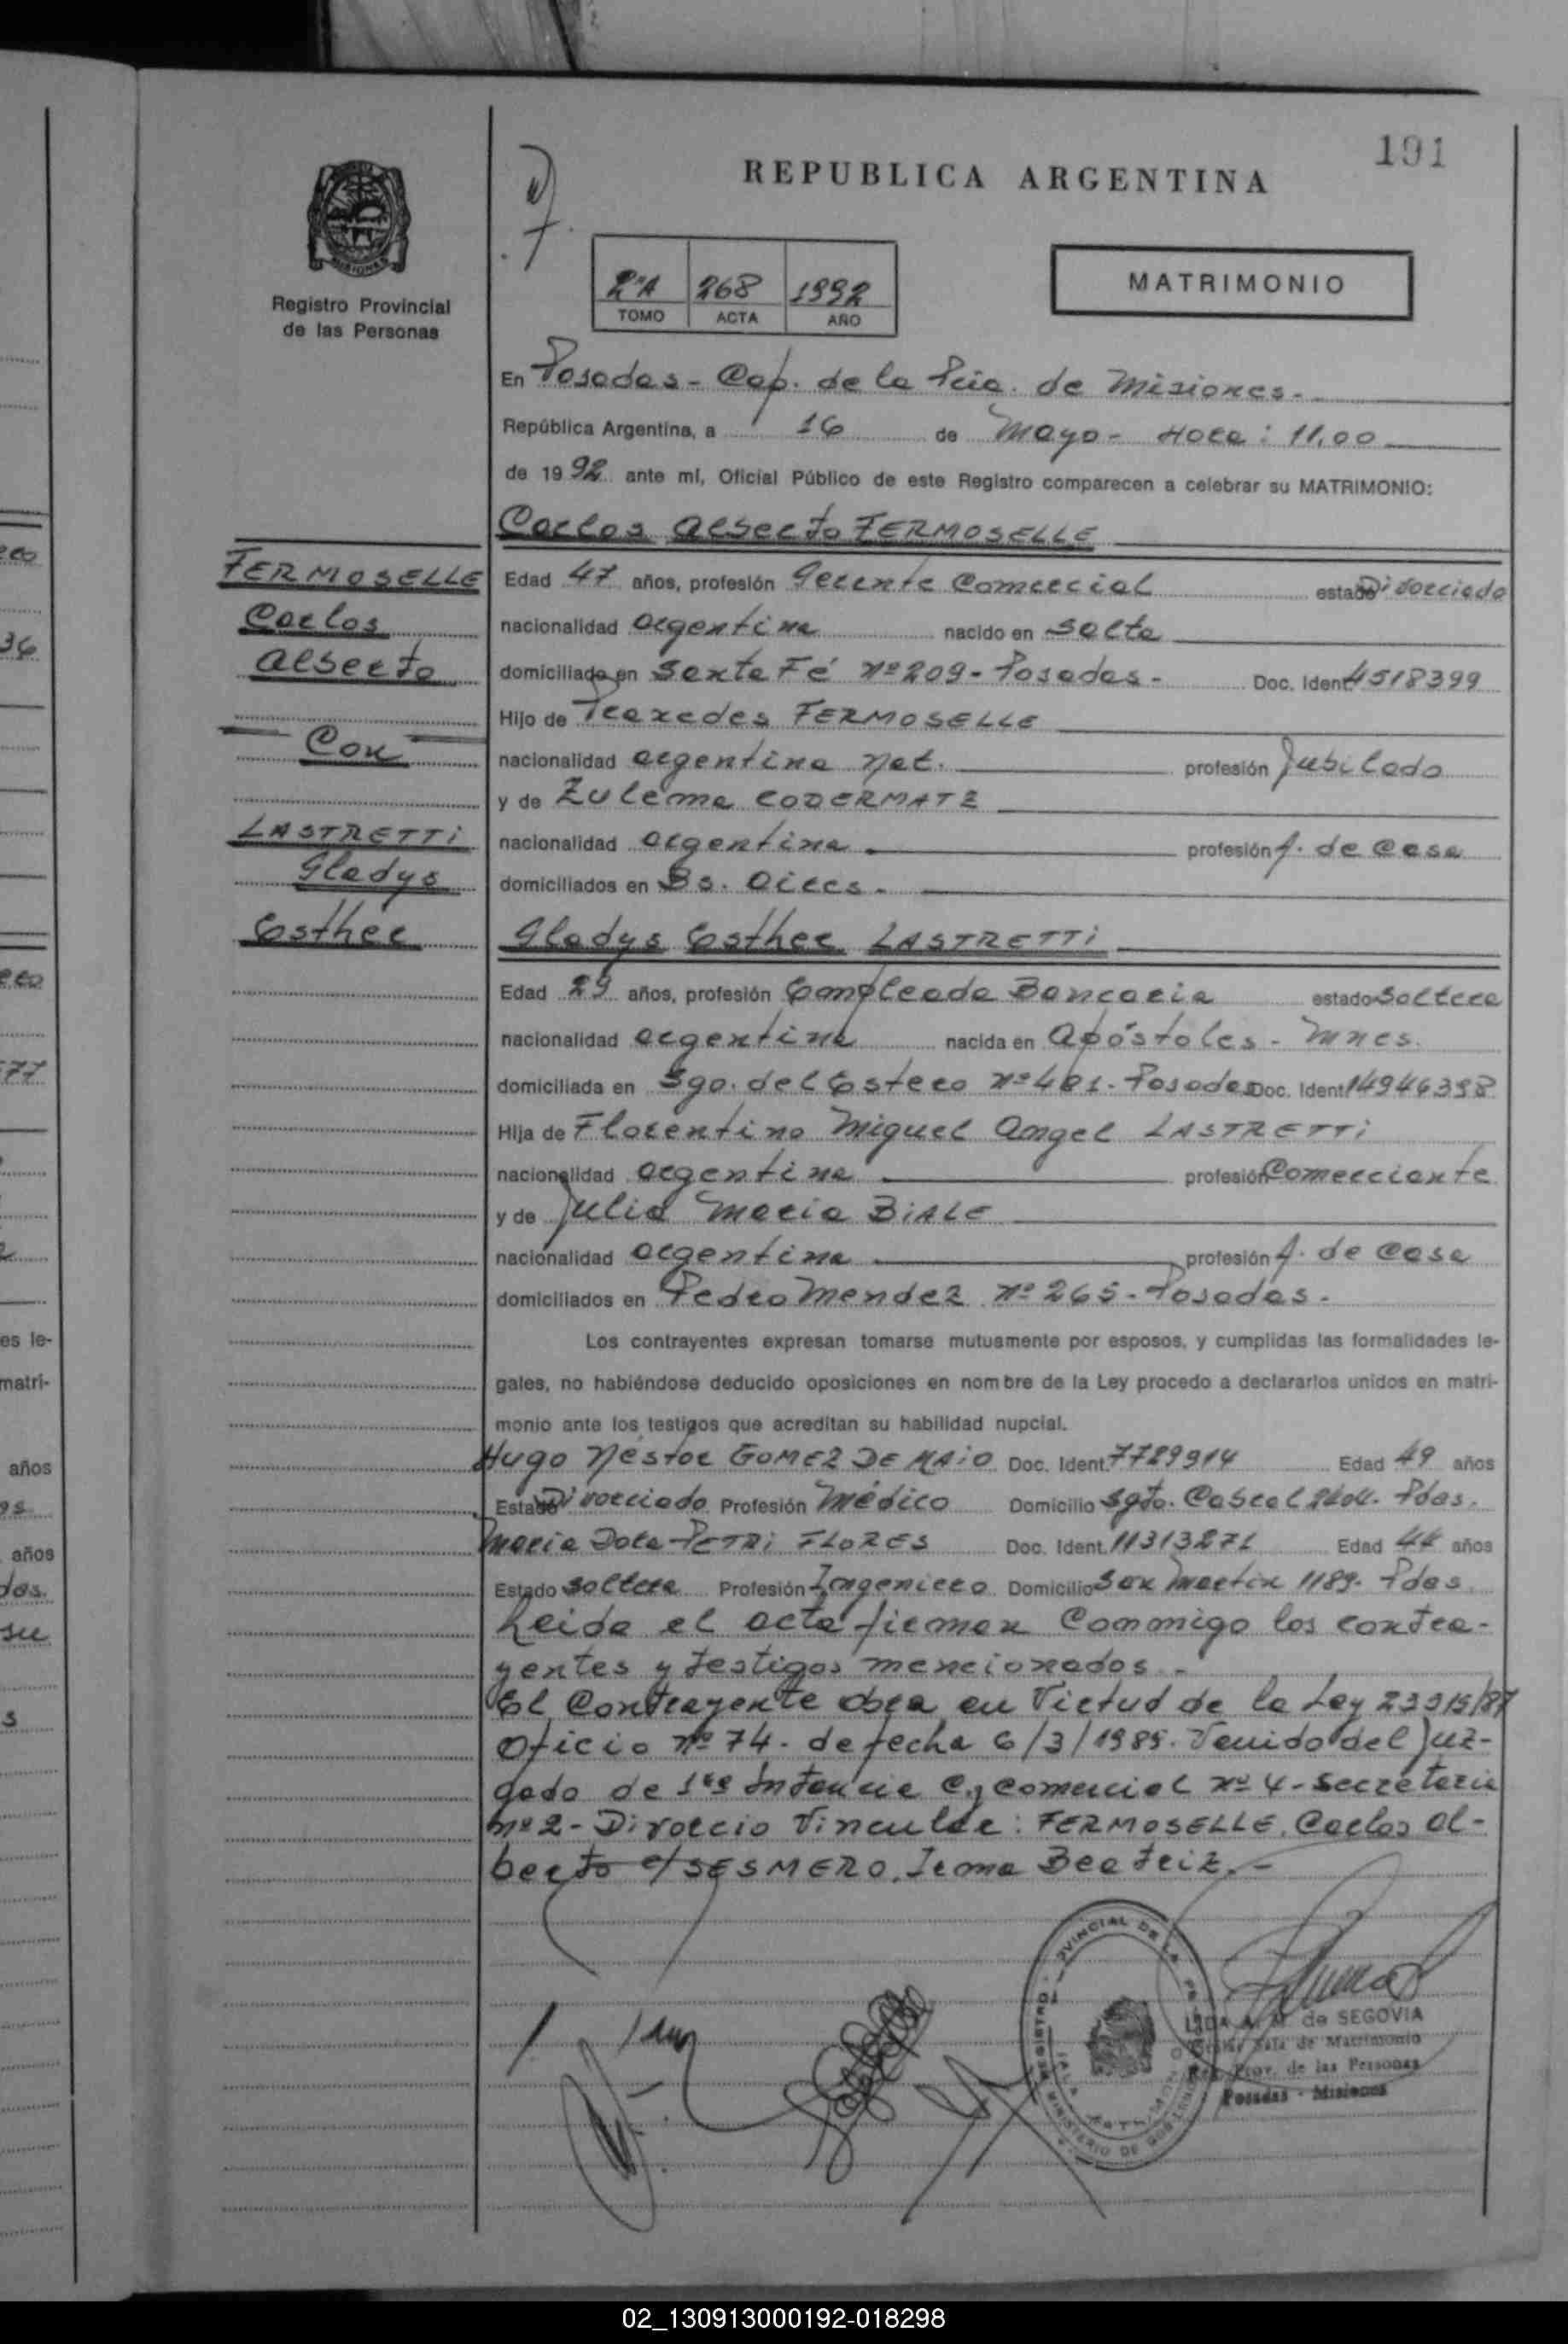 191
REPUBLICA ARGENTINA
MISIONES
Registro Provincial
de las Personas
2ºA 268 1992
TOMO ACTA AÑO
MATRIMONIO
En Posadas - Cap. de la Pcia. de Misiones.-
República Argentina, a 16 de Mayo - Hora: 11,00
de 1992 ante mí, Oficial Público de este Registro comparecen a celebrar su MATRIMONIO:
Carlos Alberto FERMOSELLE
FERMOSELLE
Carlos
Alberto
Con
LASTRETTI
Gladys
Esther
Edad 47 años, profesión Gerente Comercial estado Divorciado
nacionalidad argentina nacido en Salta
domiciliado en Santa Fé nº 209 - Posadas - Doc. Ident 4518399
Hijo de Praxedes FERMOSELLE
nacionalidad argentina nat. profesión Jubilado
y de Zulema CODERMATZ
nacionalidad argentina profesión A. de Casa
domiciliados en Bs. Aires.
Gladys Esther LASTRETTI
Edad 29 años, profesión Empleada Bancaria estado Soltera
nacionalidad argentina nacida en Apóstoles - Mnes.
domiciliada en Sgo. del Estero nº 481 - Posadas Doc. Ident 14946398
Hija de Florentino Miguel Angel LASTRETTI
nacionalidad argentina profesión Comerciante
y de Julia Maria BIALE
nacionalidad argentina profesión A. de Casa
domiciliados en Pedro Mendez nº 265 - Posadas.
Los contrayentes expresan tomarse mutuamente por esposos, y cumplidas las formalidades le-
gales, no habiéndose deducido oposiciones en nombre de la Ley procedo a declararlos unidos en matri-
monio ante los testigos que acreditan su habilidad nupcial.
Hugo Néstor GOMEZ DE MAIO Doc. Ident. 7789914 Edad 49 años
Estado Divorciado Profesión Médico Domicilio Sgto. Cabral Pdas.
Maria Dora PETRI FLORES Doc. Ident. 11313271 Edad 44 años
Estado soltera Profesión Ingeniero Domicilio San Martin 1189. Pdas.
Leida el acta firman Conmigo los contra-
yentes y testigos mencionados.-
El Contrayente obra en Virtud de la Ley 23315/87
Oficio nº 74. de fecha 6/3/1989. Venido del Juz-
gado de 1ra Intancia C. y Comercial nº 4 - Secretaria
nº 2 - Divorcio Vincular: FERMOSELLE, Carlos Al-
berto c/ SESMERO, Irma Beatriz.-
LIDA A. M. de SEGOVIA
Sala de Matrimonio
Reg. Prov. de las Personas
Posadas - Misiones
02_130913000192-018298